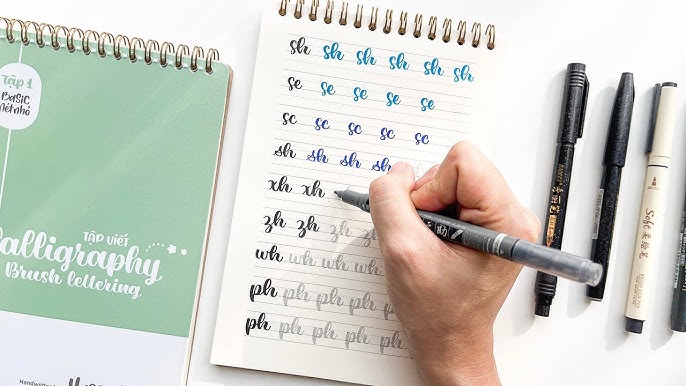 Tập 1
BASIC
Nét nhỏ
TẬP VIẾT
Calligraphy
Brush lettering
sh sh sh sh sh sh
se se se se se
sc sc sc sc sc
sh sh sh sh
xh xh
zh zh zh zh
wh wh wh wh
ph ph ph ph
ph ph ph ph ph
Soft